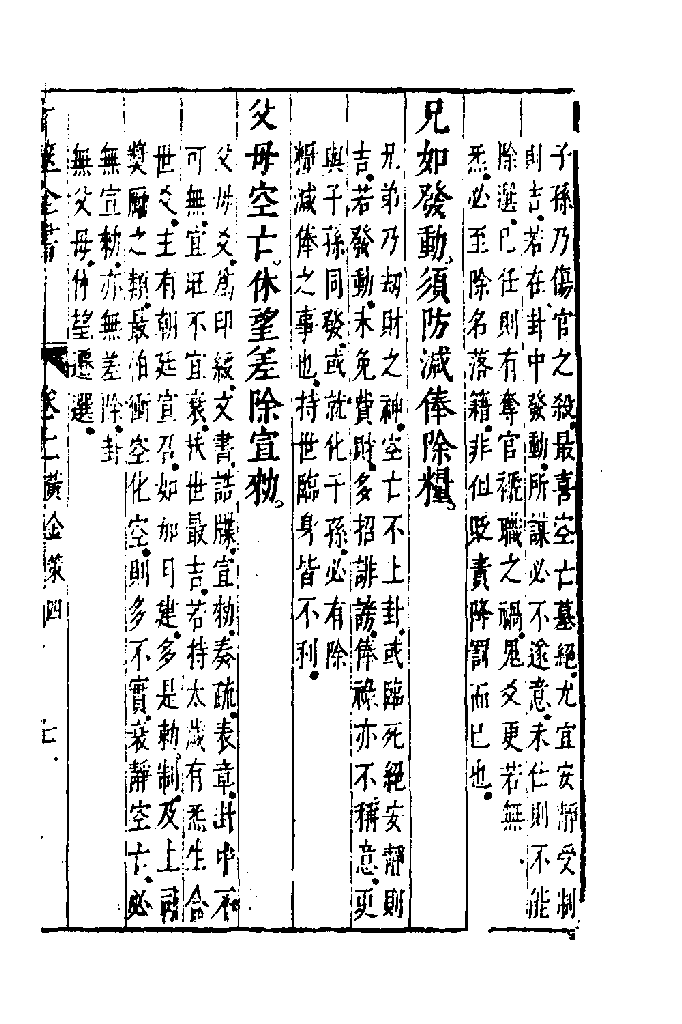 子孫乃傷官之殺最喜空亡墓絕尤宜安靜受制
則吉若在卦中發動所謀必不遂意未仕則不能
除選已任則有奪官褫職之禍鬼爻更若無
炁必至除名落籍非但貶責降罰而已也
兄如發動須防減俸除糧
兄弟乃刼財之神空亡不上卦或臨死絕安靜則
吉若發動未免費財多招誹謗俸祿亦不稱意更
與子孫同發或就化子孫必有除
糧減俸之事也持世臨身皆不利
父母空亡休望差除宣勅
父母爻爲印綬文書誥牒宣勅奏疏表章卦中不
可無宜旺不宜衰扶世最吉若持太歲有炁生合
世爻主有朝廷宣召如加月建多是勅制及上司
獎勵之類最怕衝空化空則多不實衰靜空亡必
無宣勅亦無差除卦
無父母休望遷選
卷七 黃金策四 七